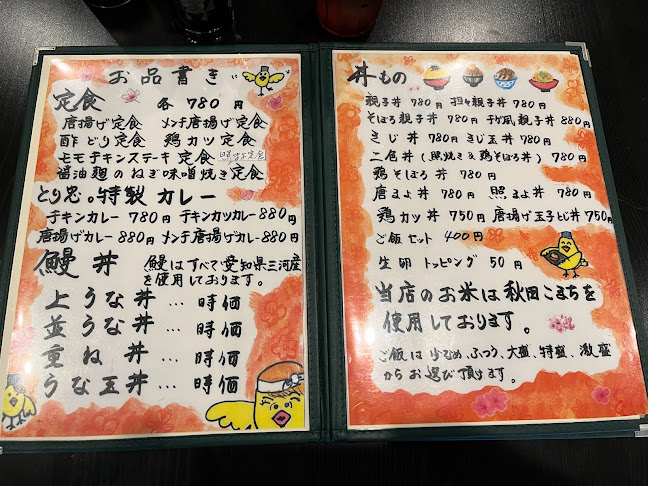 お品書き
定食 各780円
唐揚げ定食 メンチ唐揚げ定食
酢どり定食 鶏カツ定食
モモチキンステーキ定食 照マヨ定食
醤油麹のねぎ味噌焼き定食
とり忠。特製カレー
チキンカレー780円 チキンカツカレー880円
唐揚げカレー880円 メンチ唐揚げカレー880円
鰻丼 鰻はすべて愛知県三河産
を使用しております。
上うな丼…時価
並うな丼…時価
重ね丼…時価
うな玉丼…時価
丼もの
親子丼780円 担々親子丼780円
そぼろ親子丼780円 チゲ風親子丼880円
きじ丼780円 きじ玉丼780円
二色丼(照焼き&鶏そぼろ丼)780円
鶏そぼろ丼780円
唐まよ丼780円 照まよ丼780円
鶏カツ丼750円 唐揚げ玉子とじ丼750円
ご飯セット400円
生卵トッピング50円
当店のお米は秋田こまちを
使用しております。
ご飯は少なめ、ふつう、大盛、特盛、激盛
からお選び頂けます。